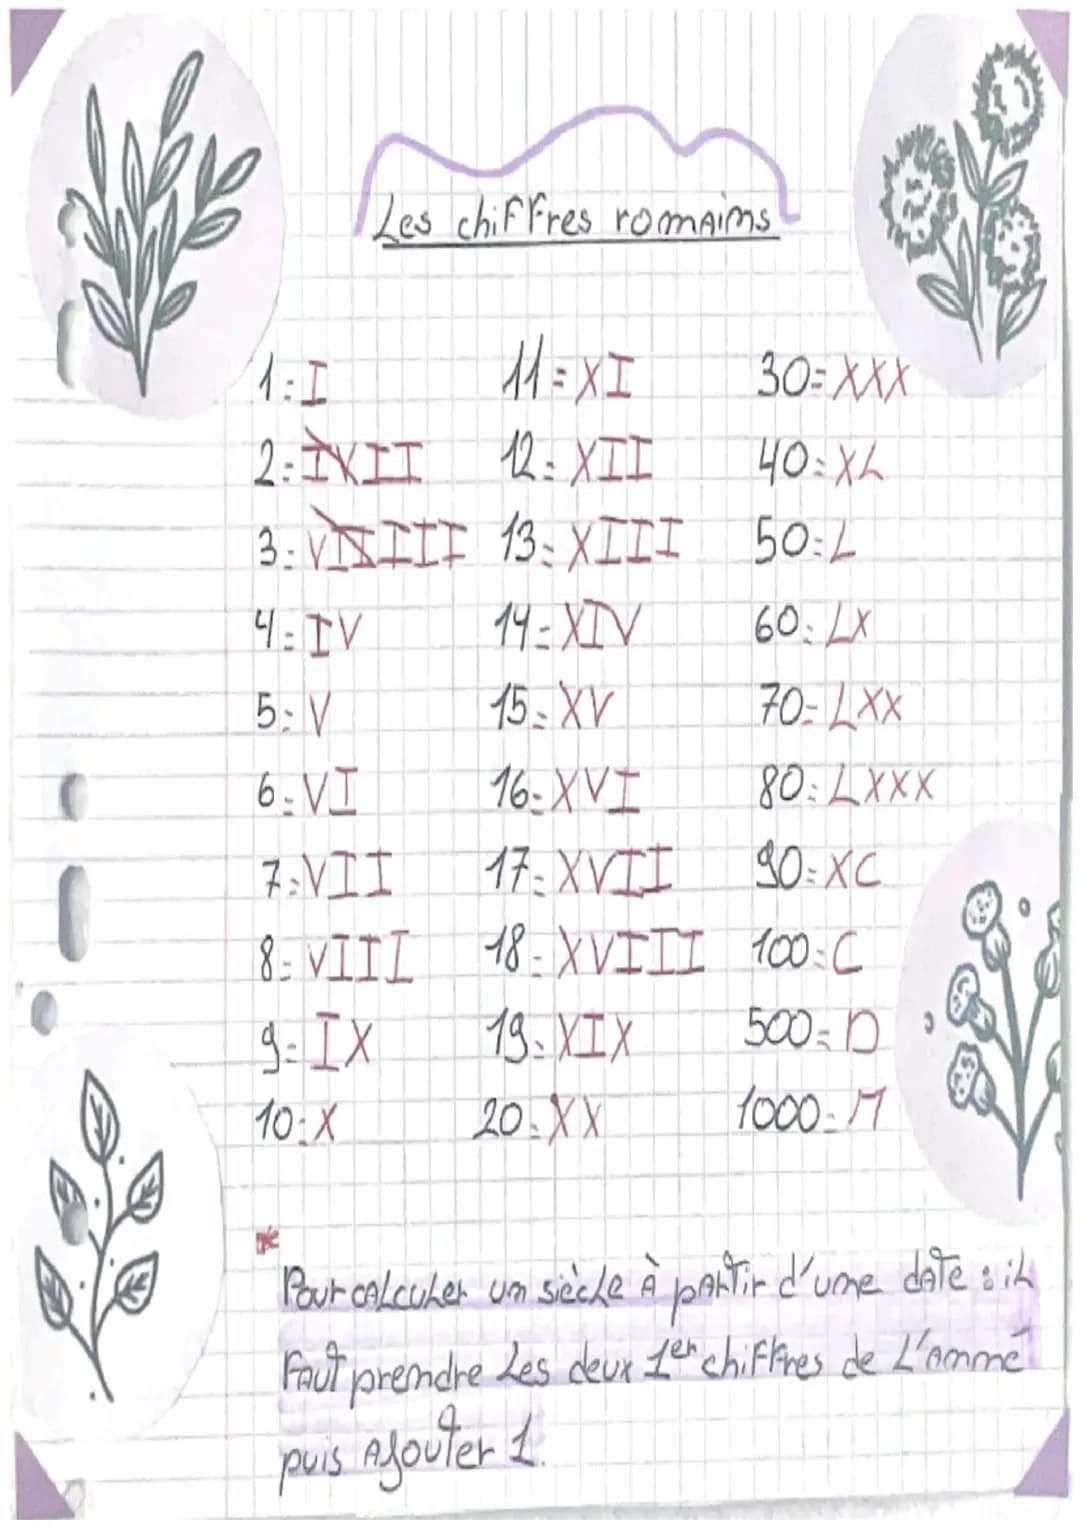 Les chiffres romains
1=I
2=II
3=III
4=IV
5=V
6=VI
7=VII
8=VIII
9=IX
10=X
11=XI
12=XII
13=XIII
14=XIV
15=XV
16=XVI
17=XVII
18=XVIII
19=XIX
20=XX
30=XXX
40=XL
50=L
60=LX
70=LXX
80=LXXX
90=XC
100=C
500=D
1000=M
Pour calculer un siècle à partir d'une date : il
faut prendre les deux 1er chiffres de l'anné
puis ajouter 1.